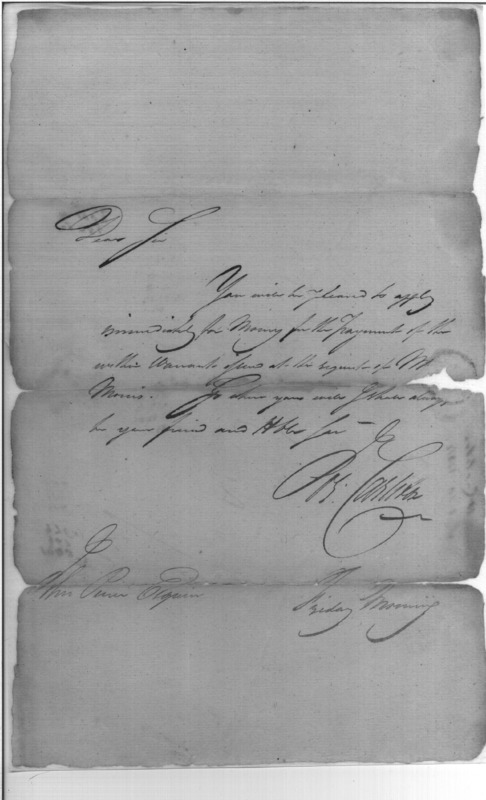 Dear Sir
You will be pleased to apply
immediately for Money for the Payment of the
within Warrants issued at the request of Mr
Morris. In doing you will I shall always
be your friend and Hble Ser
Friday Morning